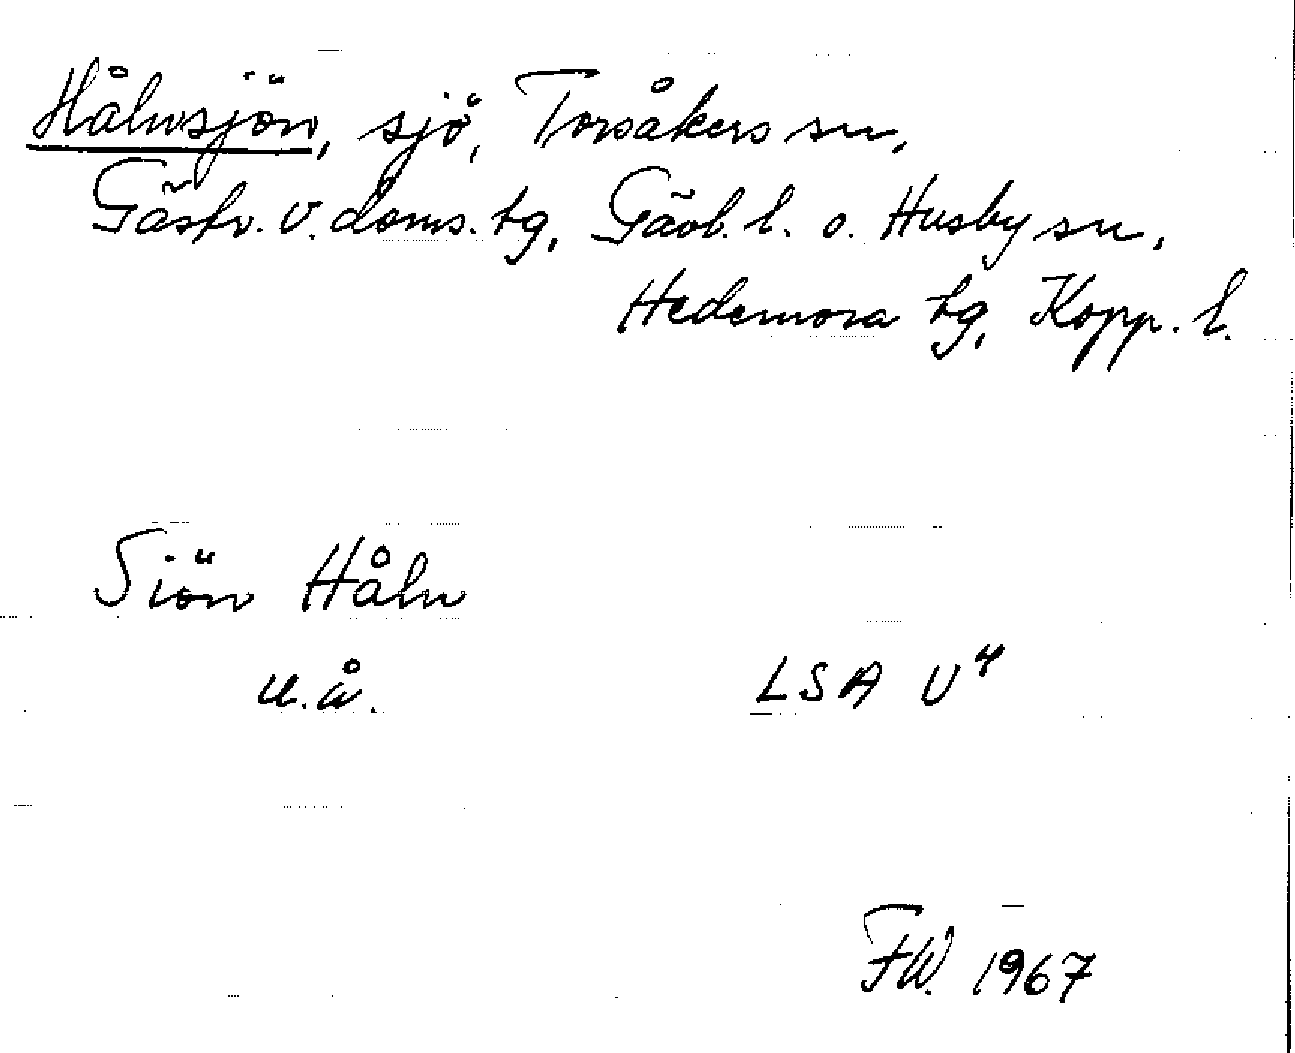 Hålnsjön, sjö, Torsåkers sn,
Gästr. v. doms. tg, Gävl. l. o. Husby sn,
Hedemora tg, Kopp. l.
Siön Håln
u.å. LSA U⁴
F.W. 1967